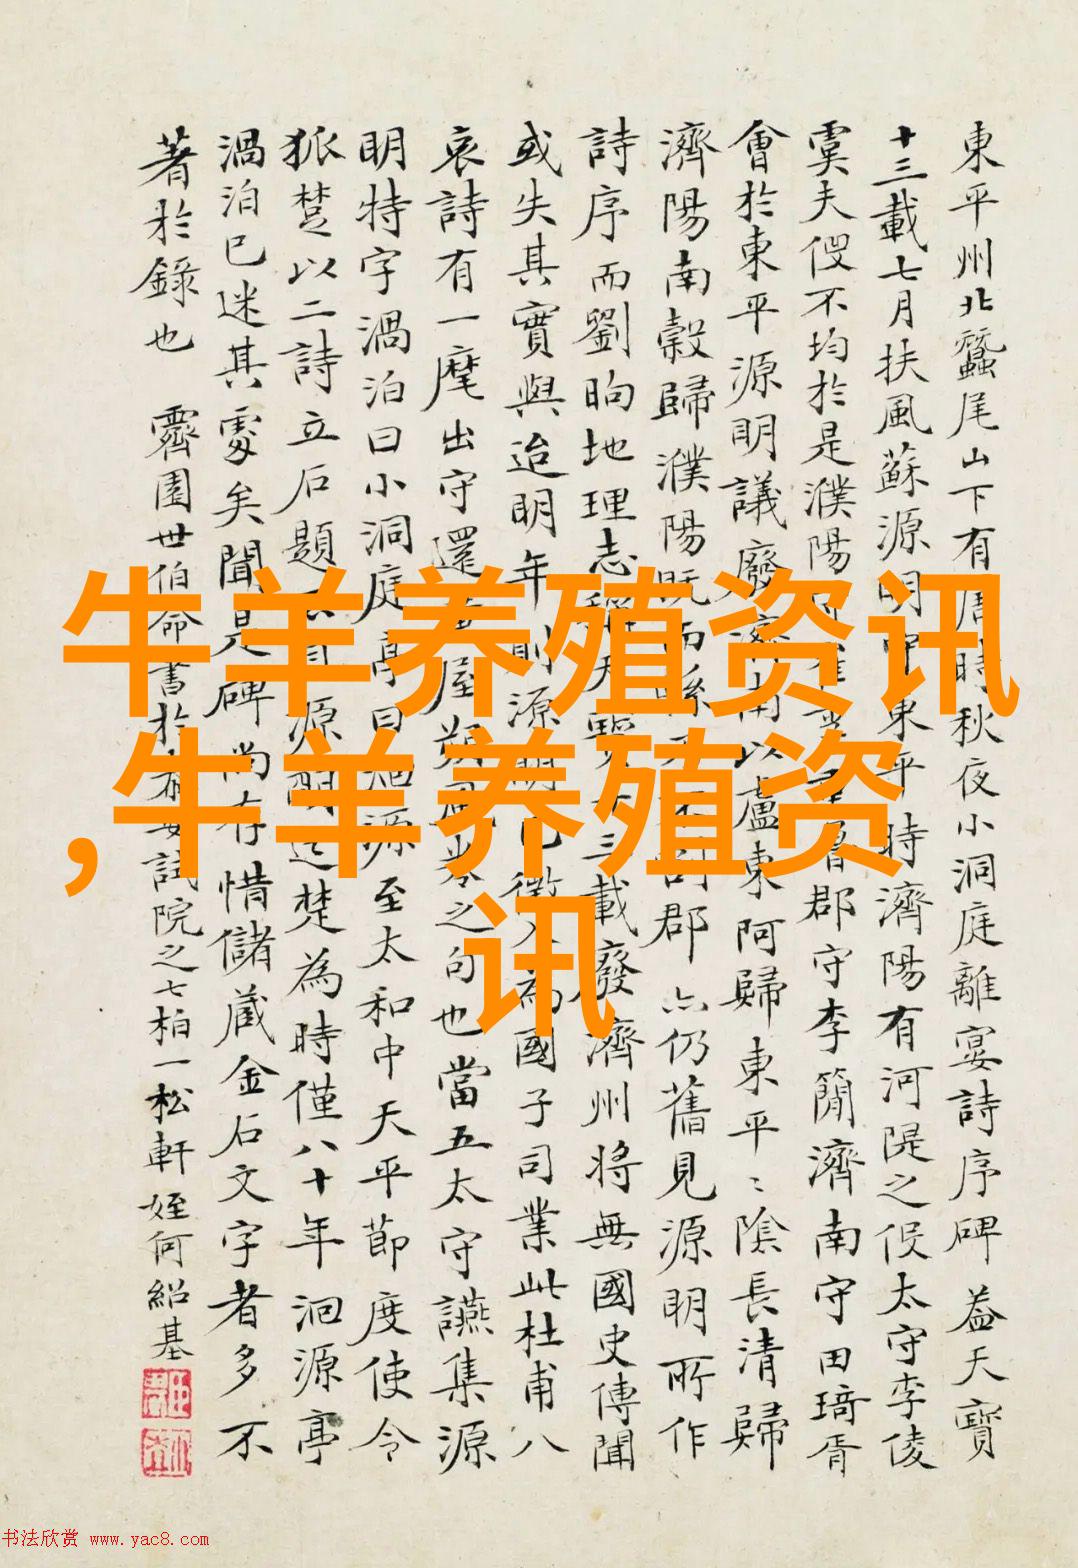 東平州北蠶尾山下有唐時秋夜小洞庭離宴詩序碑蓋天寶
十三載七月扶風蘇源明守東平時濟陽有河隄之役太守李倰
寞夫伇不均於是濮陽守李簡濟南守田琦胥
會於東平源明議廢濟南以盧東阿歸東平〻陰長清歸
濟陽南穀歸濮陽既而郡亦仍舊見源明所作
詩序而劉昫地理志稱天寶十三載廢濟州將無國史傳聞
或失其實與迨明年則源明已徵入為國子司業此杜甫八
哀詩有一麾出守還之句也當五太守讌集源
明特字渦泊曰小洞庭亭曰洄源至太和中天平節度使令
狐楚以二詩立石題源明迄楚為時僅八十年洄源亭
渦泊已迷其處矣聞是碑尚存惜儲藏金石文字者多不
著於錄也 霽園世伯命書於試院之七柏一松軒姪何紹基
牛羊养殖资讯
,牛羊养殖资
讯
书法欣赏 www.yac8.com